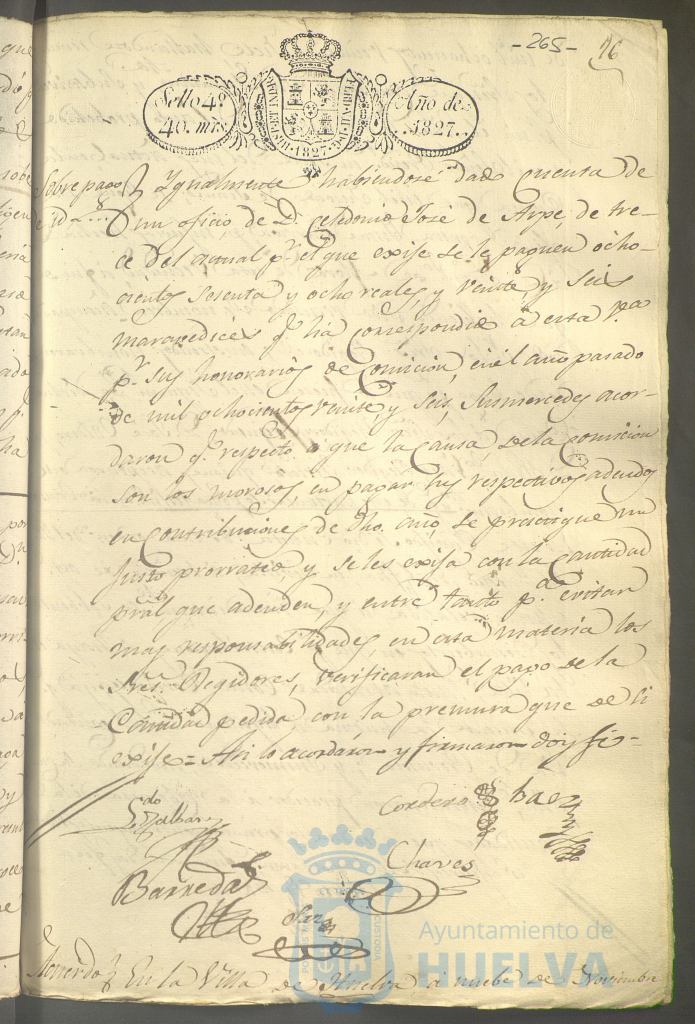 -265- 76
Sello 4º
40. mrs.
HISP. ET IND. R.
FERD. VII. D. G.
1827
Año de
1827.
Sobre pago
Ygualmente habiendose dado cuenta de
un oficio de D. Celedonio José de Arpe, de tre-
ce del actual pr. el que exise se le paguen ocho-
cientos sesenta y ocho reales y veinte y seis
maravedices q. ha correspondido a esta Va.
pr. sus honorarios de Comicion, en el año pasado
de mil ochocientos veinte y seis, Sus mercedes acor-
daron q. respecto a que la causa, de la comision
son los morosos, en pagar sus respectivos adeudos
en Contribuciones de dho. año, se practique un
justo prorrateo y se les exisa con la cantidad
pral. que adeuden, y entre tanto pa. evitar
mas responsabilidades, en esta materia los
Sres. Regidores, verificaran el pago de la
Cantidad pedida con la premura que se li
exise = Asi lo acordaron y firmaron doy fe-
Cordero Baez
Barreda
Chaves
Acuerdo En la Villa de Huelva, a nuebe de Noviembre
Ayuntamiento de
HUELVA